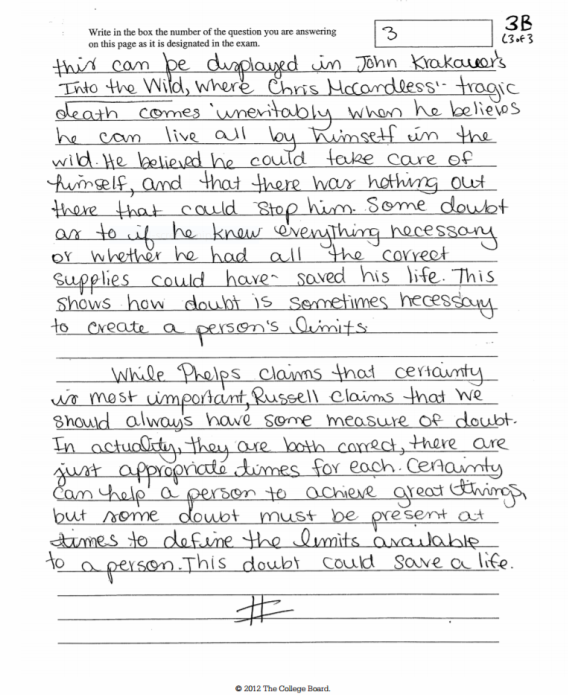 Write in the box the number of the question you are answering
on this page as it is designated in the exam.
3
3B
(3 of 3
this can be displayed in John Krakauer's
Into the Wild, where Chris Mccandless' tragic
death comes inevitably when he believes
he can live all by himself in the
wild. He believed he could take care of
himself, and that there was nothing out
there that could stop him. Some doubt
as to if he knew everything necessary
or whether he had all the correct
supplies could have saved his life. This
shows how doubt is sometimes necessary
to create a person's limits
While Phelps claims that certainty
is most important, Russell claims that we
should always have some measure of doubt.
In actuality, they are both correct, there are
just appropriate times for each. Certainty
can help a person to achieve great things,
but some doubt must be present at
times to define the limits available
to a person. This doubt could save a life.
#
© 2012 The College Board.